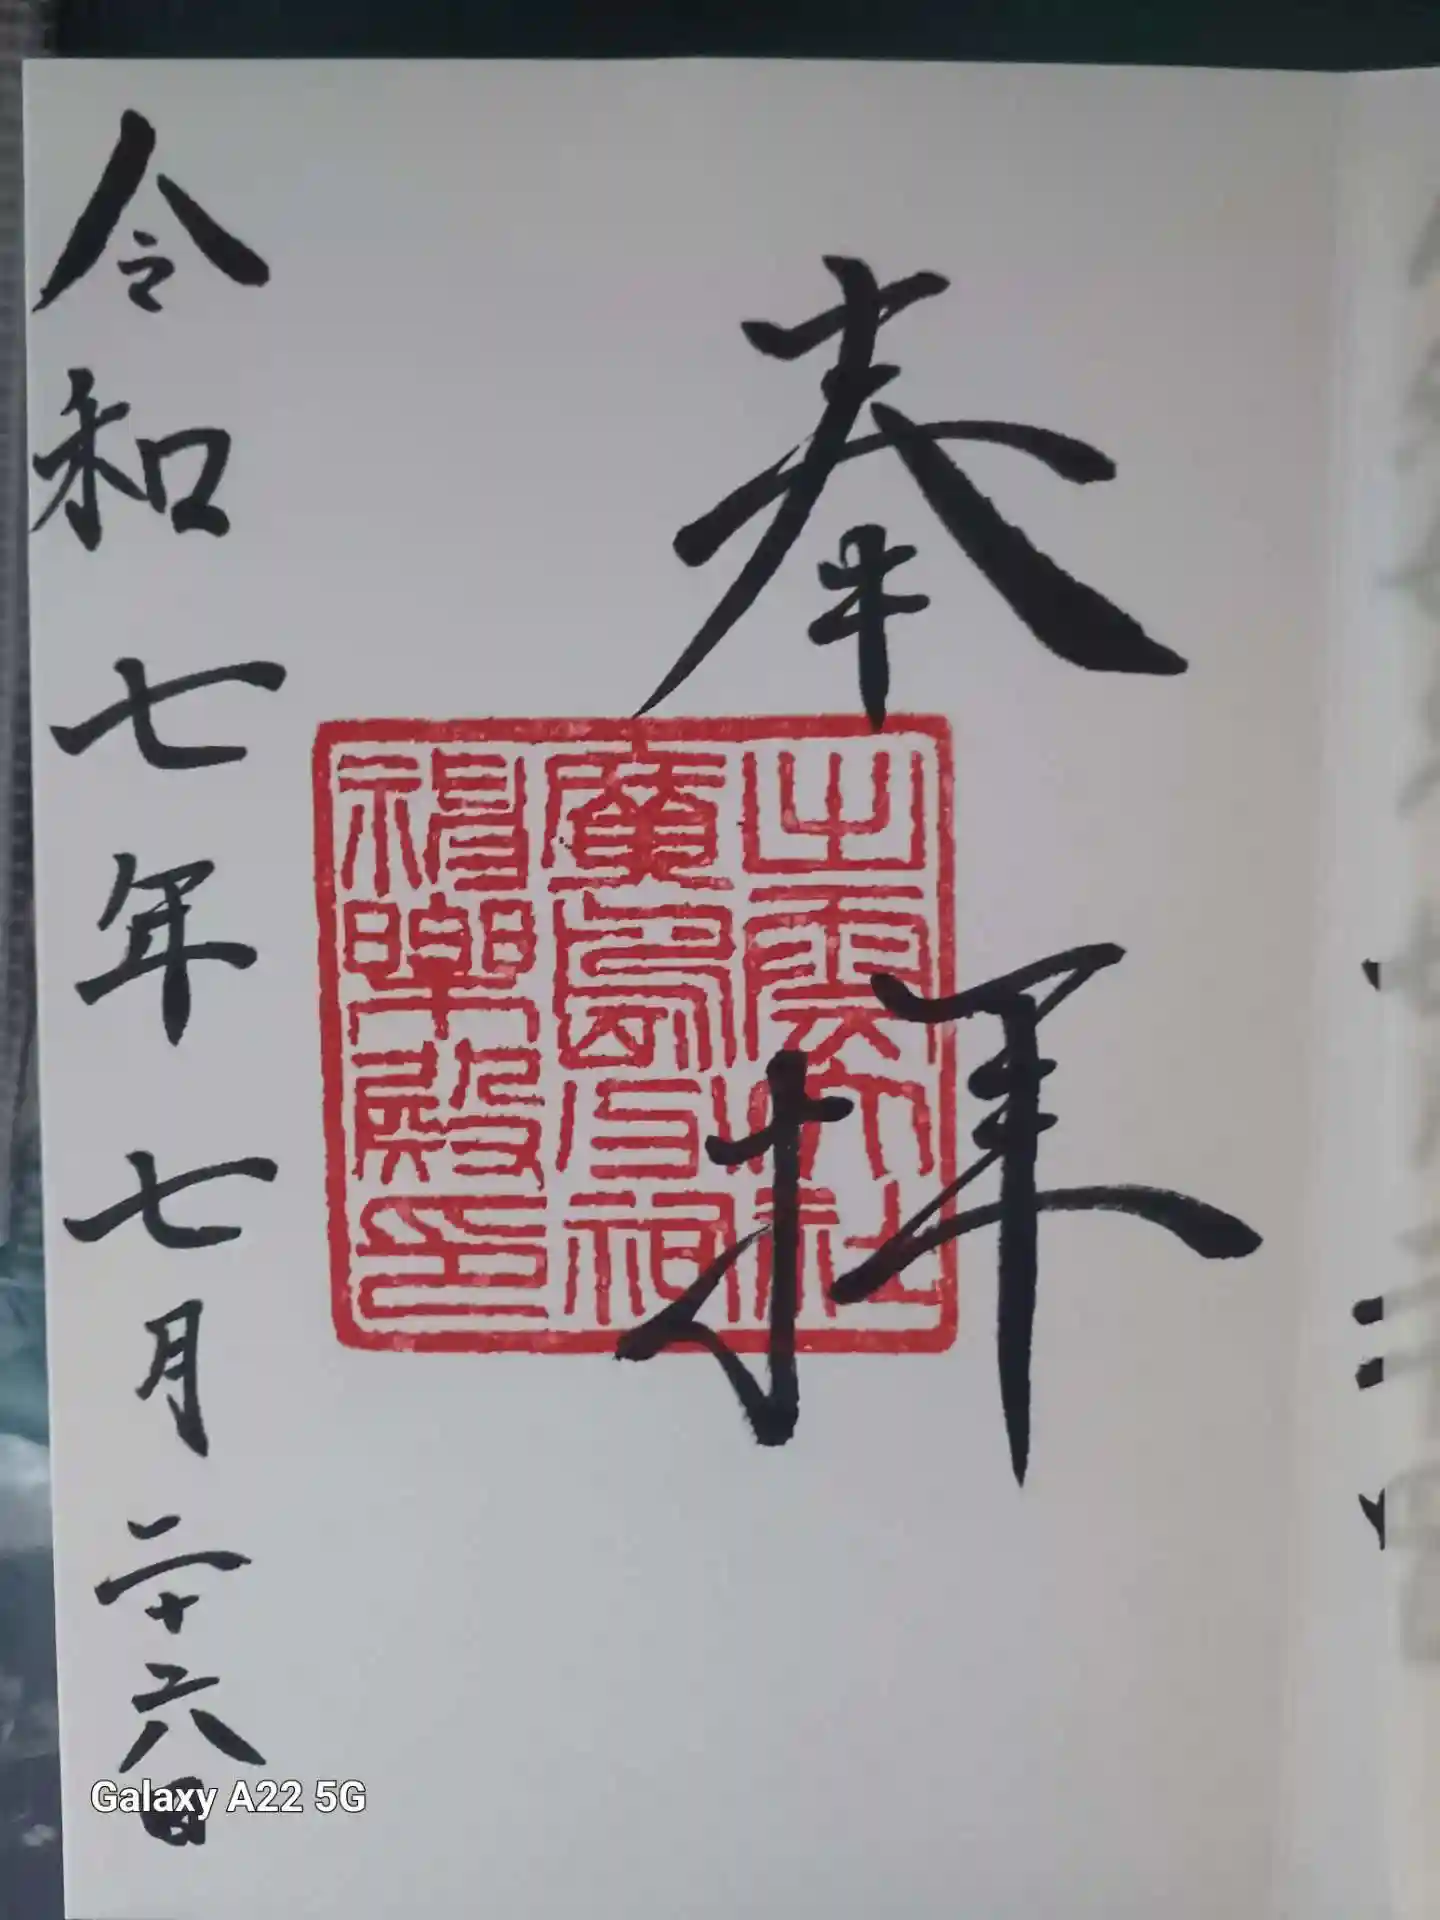 奉拝
出雲大社
廣島分祠
神楽殿印
令和七年七月二十六日
Galaxy A22 5G